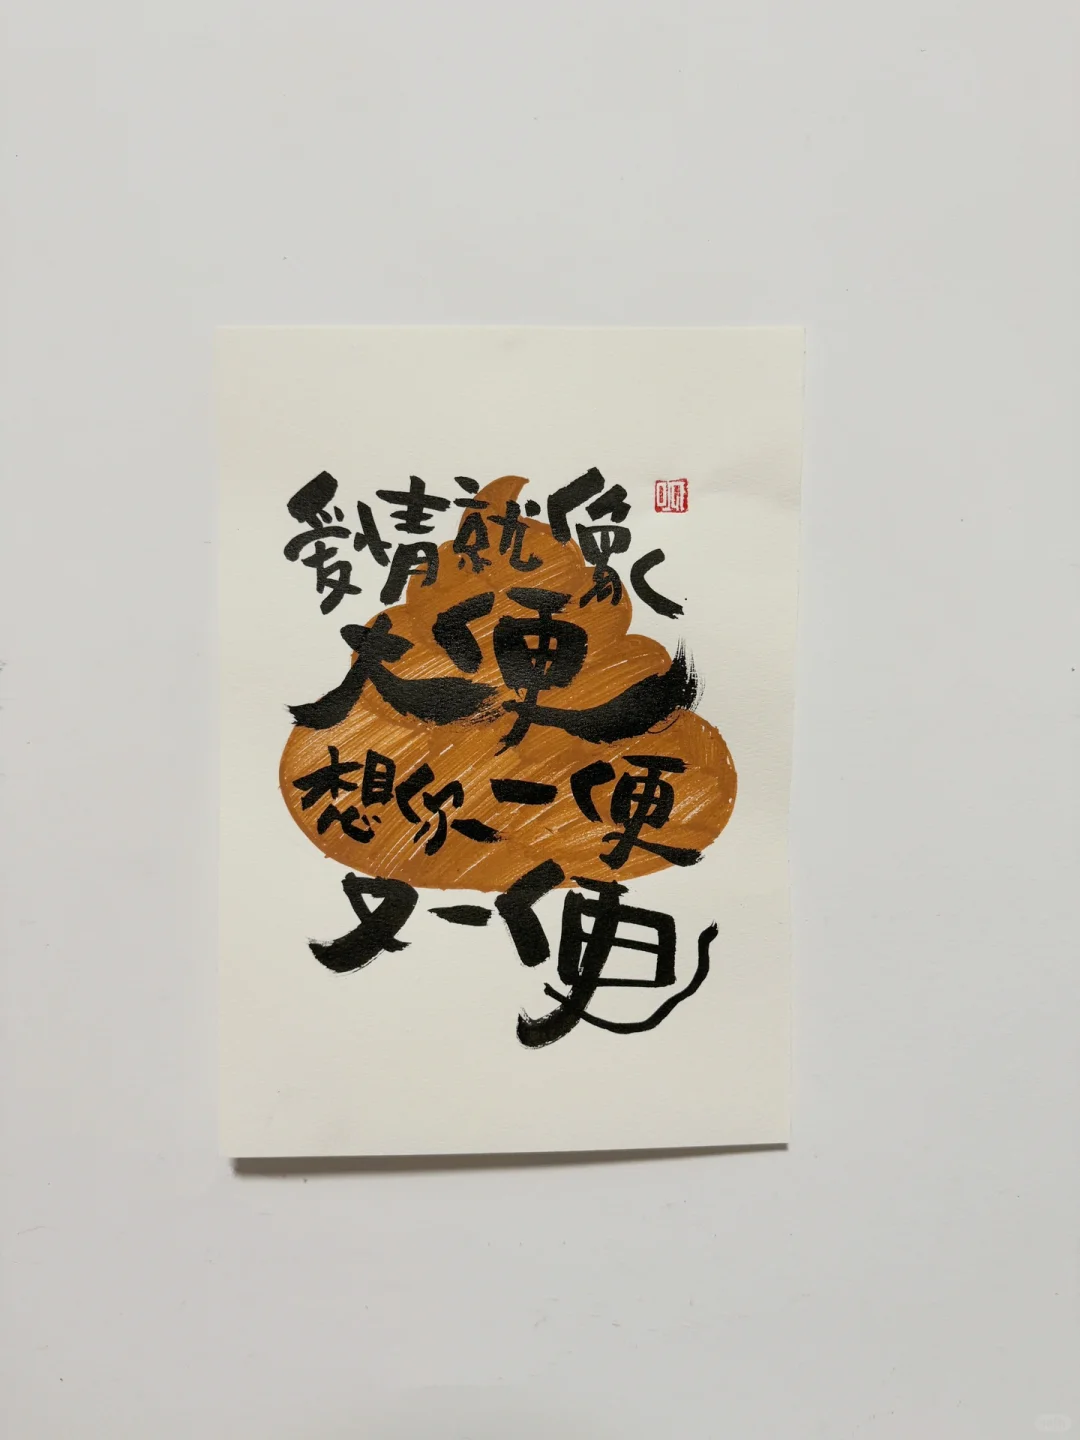 爱情就像
大便
想你一便
又一便